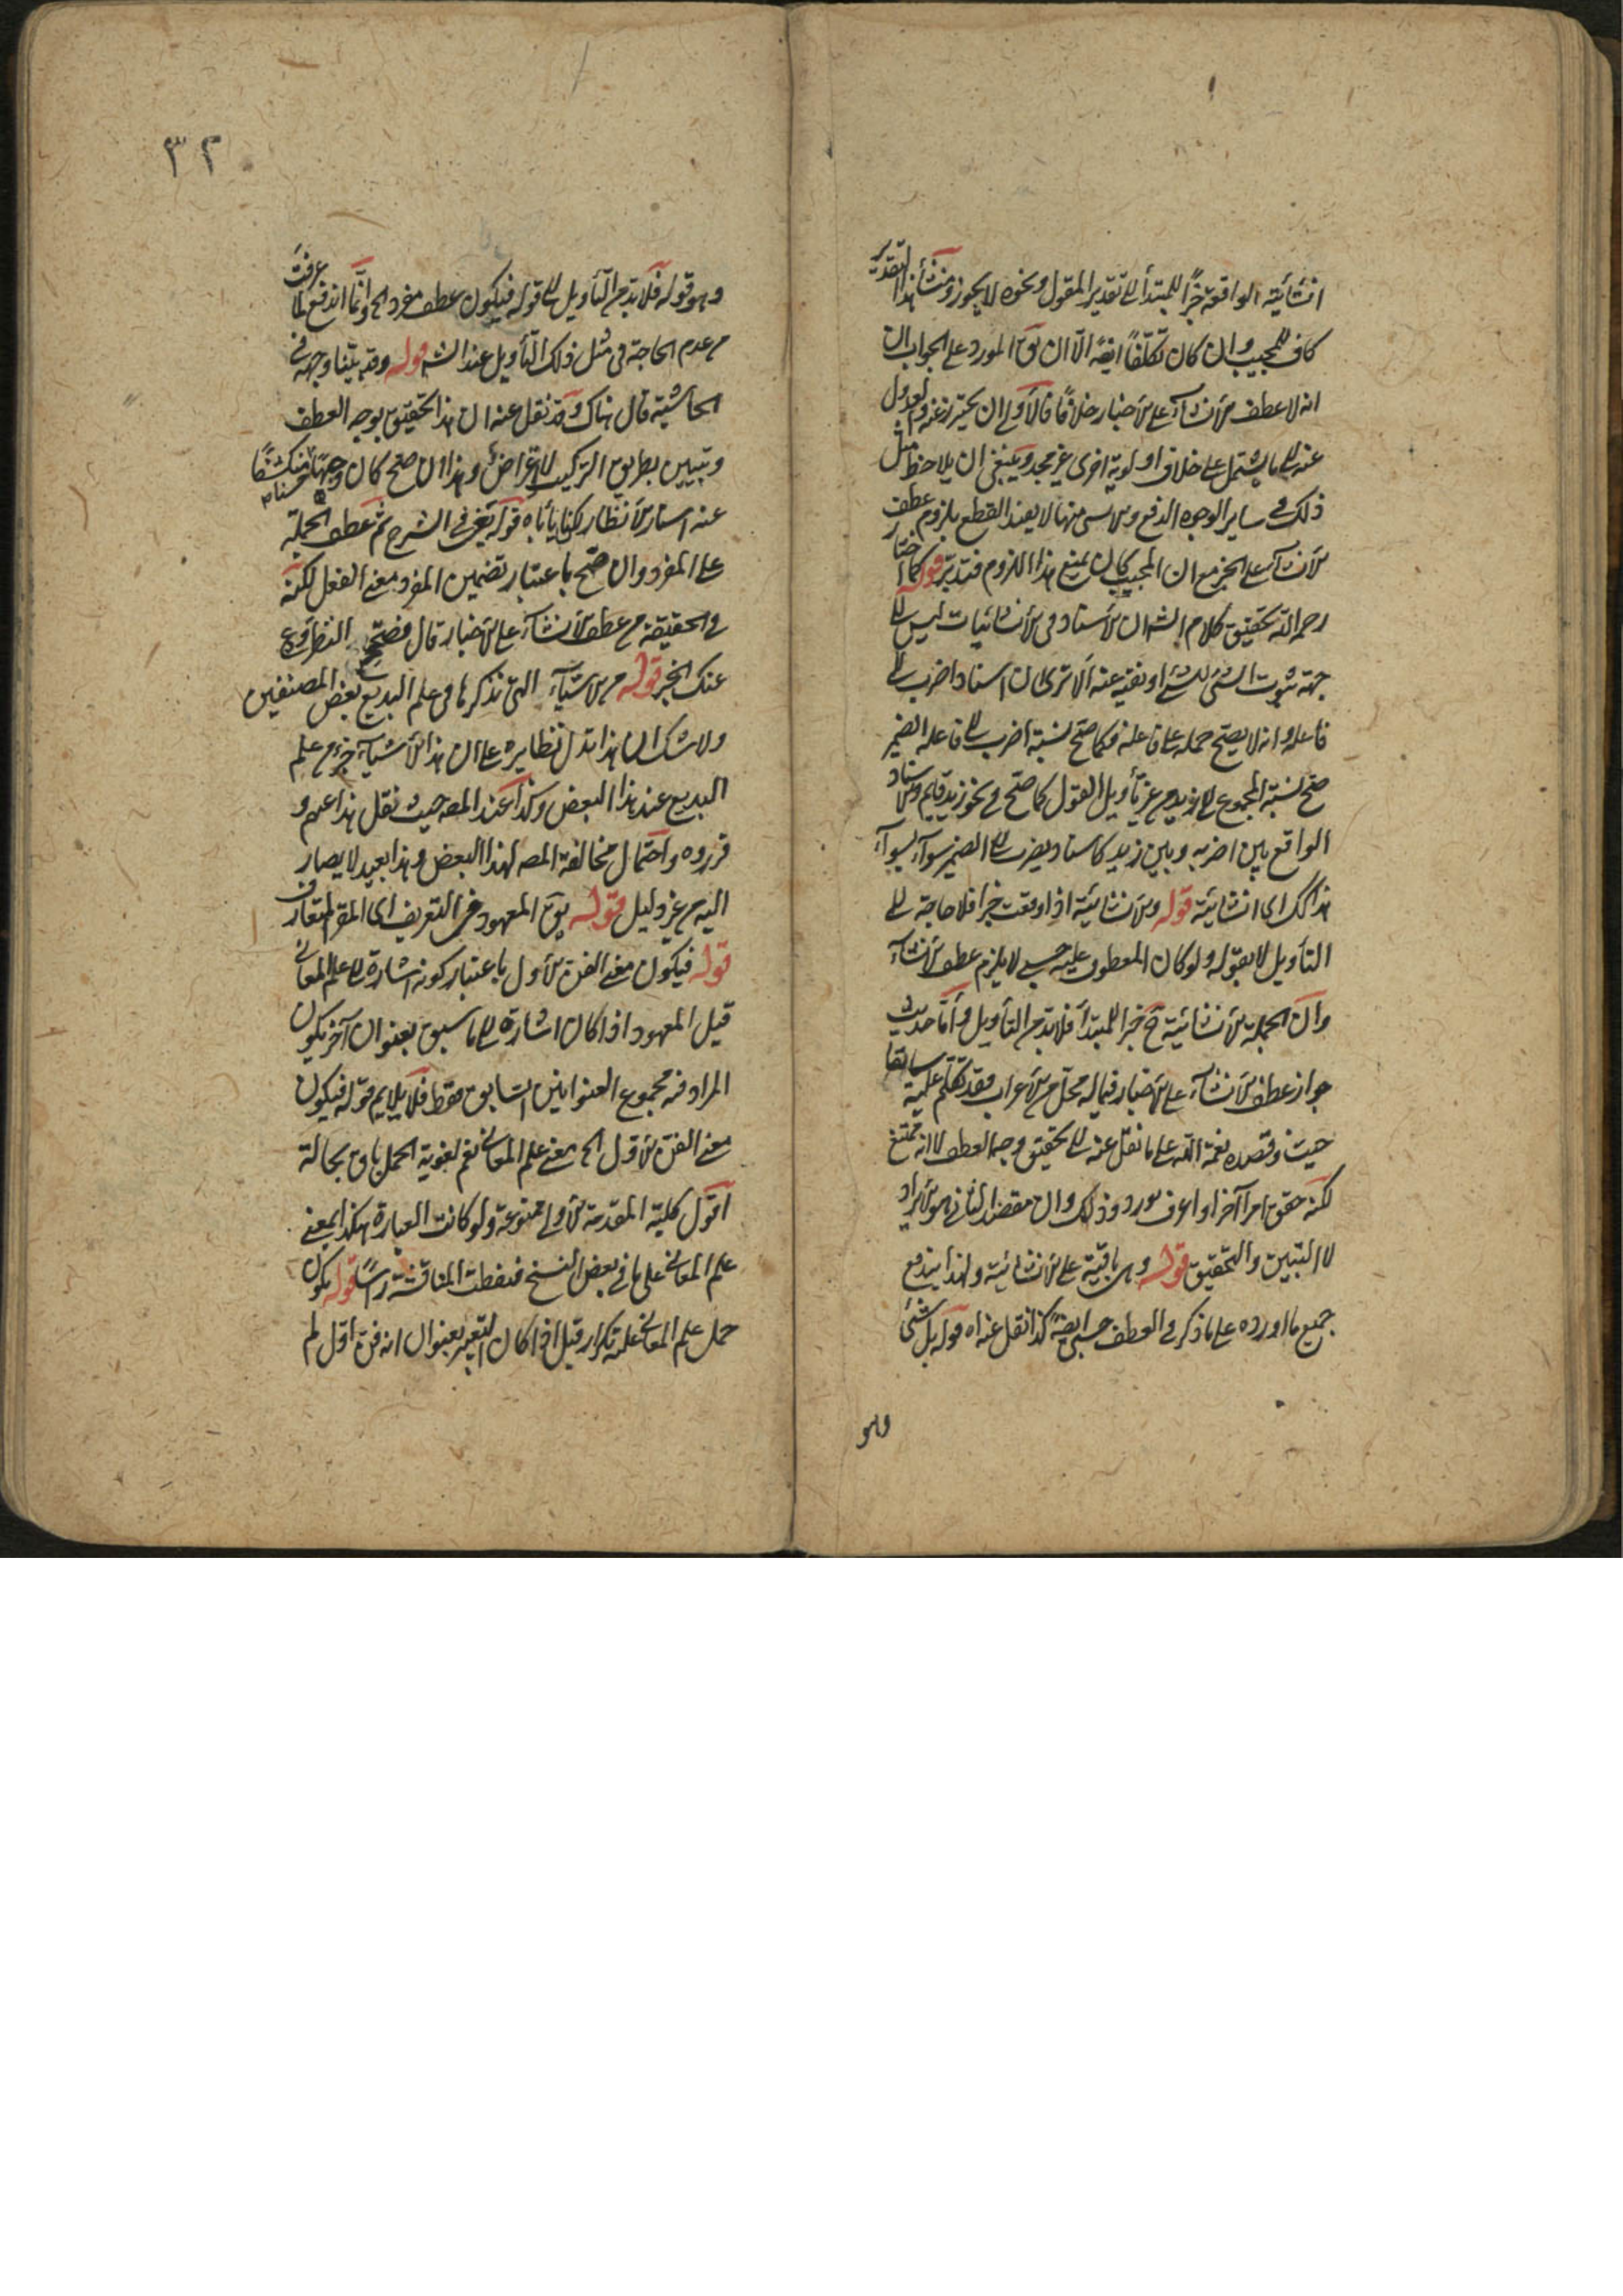 انشائية الواقعة خبرًا للمبتدأ الى تقدير المقول ونحوه لا يجوز ومنشأ هذا التقدير
كاف للمجيب وان كان تكلّفًا ايضًا الّا ان يق المورد على الجواب ان
انه لا عطف الانشاء على الاخبار خلافًا فالأولى ان يحترز عنه والعدول
عنه الى ما يشتمل على خلاف اولوية اخرى غير مجد وينبغي ان يلاحظ مثل
ذلك في ساير الوجوه الدفع منها لا يفيد القطع بلزوم عطف
الانشاء على الخبر مع ان المجيب كان يمنع هذا اللزوم فتدبّر قوله كما اختار
رحمه الله تحقيق كلام الشه ان الاسناد في الانشائيات ليس الى
جهة ثبوت الشئ للشئ او نفيه عنه ألا ترى ان اسناد اضرب الى
فاعله وانه لا يصح حمله على فاعله فكما صح نسبة اضرب الى فاعله الضمير
صح نسبة المجموع الى زيد من غير تأويل القول كما صح في نحو زيد قايم والاسناد
الواقع بين اضربه وبين زيد كاسناد يضرب الى الضمير سواء بسواء
هذا لك اى انشائية قوله والانشائية اذا وقعت خبرا فلا حاجة الى
التأويل لا بقوله ولو كان المعطوف عليه حسبي لا يلزم عطف الانشاء
وان الجملة الانشائية تقع خبرا للمبتدأ فلا بد من التأويل وأما حديث
جواز عطف الانشاء على الاخبار فيما له محل من الاعراب فقد تكلم عليه سابقا
حيث وقصده نعمة الله على ما نقل عنه الى تحقيق وجه العطف لا انه ممتنع
لكنه حقق امرا آخر او اعرف مورد وذلك وان مقصد الثانى هو الايراد
لا التبيين والتحقيق قوله وهى باقية على الانشائية ولهذا يندفع
جميع ما اورده على ما ذكر في العطف حسبى ايضًا كذا نقل عنه اه قوله بل شئ
وهو
٣٢
وهو قوله فلا بد من التأويل الى قوله فيكون عطف مفرد الخ وانّما اندفع لما عرفت
من عدم الحاجة في مثل ذلك التأويل عند الشه قوله وقد بيّنا وجهه في
الحاشية قال هناك وقد نقل عنه ان هذا تحقيق بوجه العطف
وتبيين بطريق التركيب لا اعتراض وهذا ان صح كان وجهًا حسنا منكشفًا
عنه استار الانظار لكن يأباه قوله يعنى في الشرح ثم عطف الجملة
على المفرد وان صحّ باعتبار تضمين المفرد معنى الفعل لكنه
في الحقيقة من عطف الانشاء على الاخبار قال فصحّح النظر ودع
عنك الخبر قوله من الاشياء التى نذكرها في علم البديع بعض المصنفين
ولا شك ان هذا بدل نظايره على ان هذا الاشياء جزء من علم
البديع عند هذا البعض وكذا عند المصه حيث نقل هذا عنهم و
قرروه واحتمال مخالفة المصه لهذا البعض وهذا بعيد لا يصار
اليه من غير دليل قوله يق المعهود في التعريف اى المقر المتعارف
قوله فيكون معنى الفن الاول باعتبار كونه اشارة الى علم المعانى
قيل المعهود اذا كان اشارة الى ما سبق بعنوان آخر يكون
المراد منه مجموع العنوانين السابق فقط فلا يلايم قوله فيكون
معنى الفن الاول الخ يعنى علم المعانى نعم لغوية الحمل باق بحاله
اقول كلية المقدمة الاولى ممنوعة ولو كانت العبارة هكذا بمعنى
علم المعانى على ما في بعض النسخ فسقطت المناقشة رأسًا قوله يكون
حمل علم المعانى عليه تكرار قيل اذا كان التعبير بعنوان انه فن اول لم